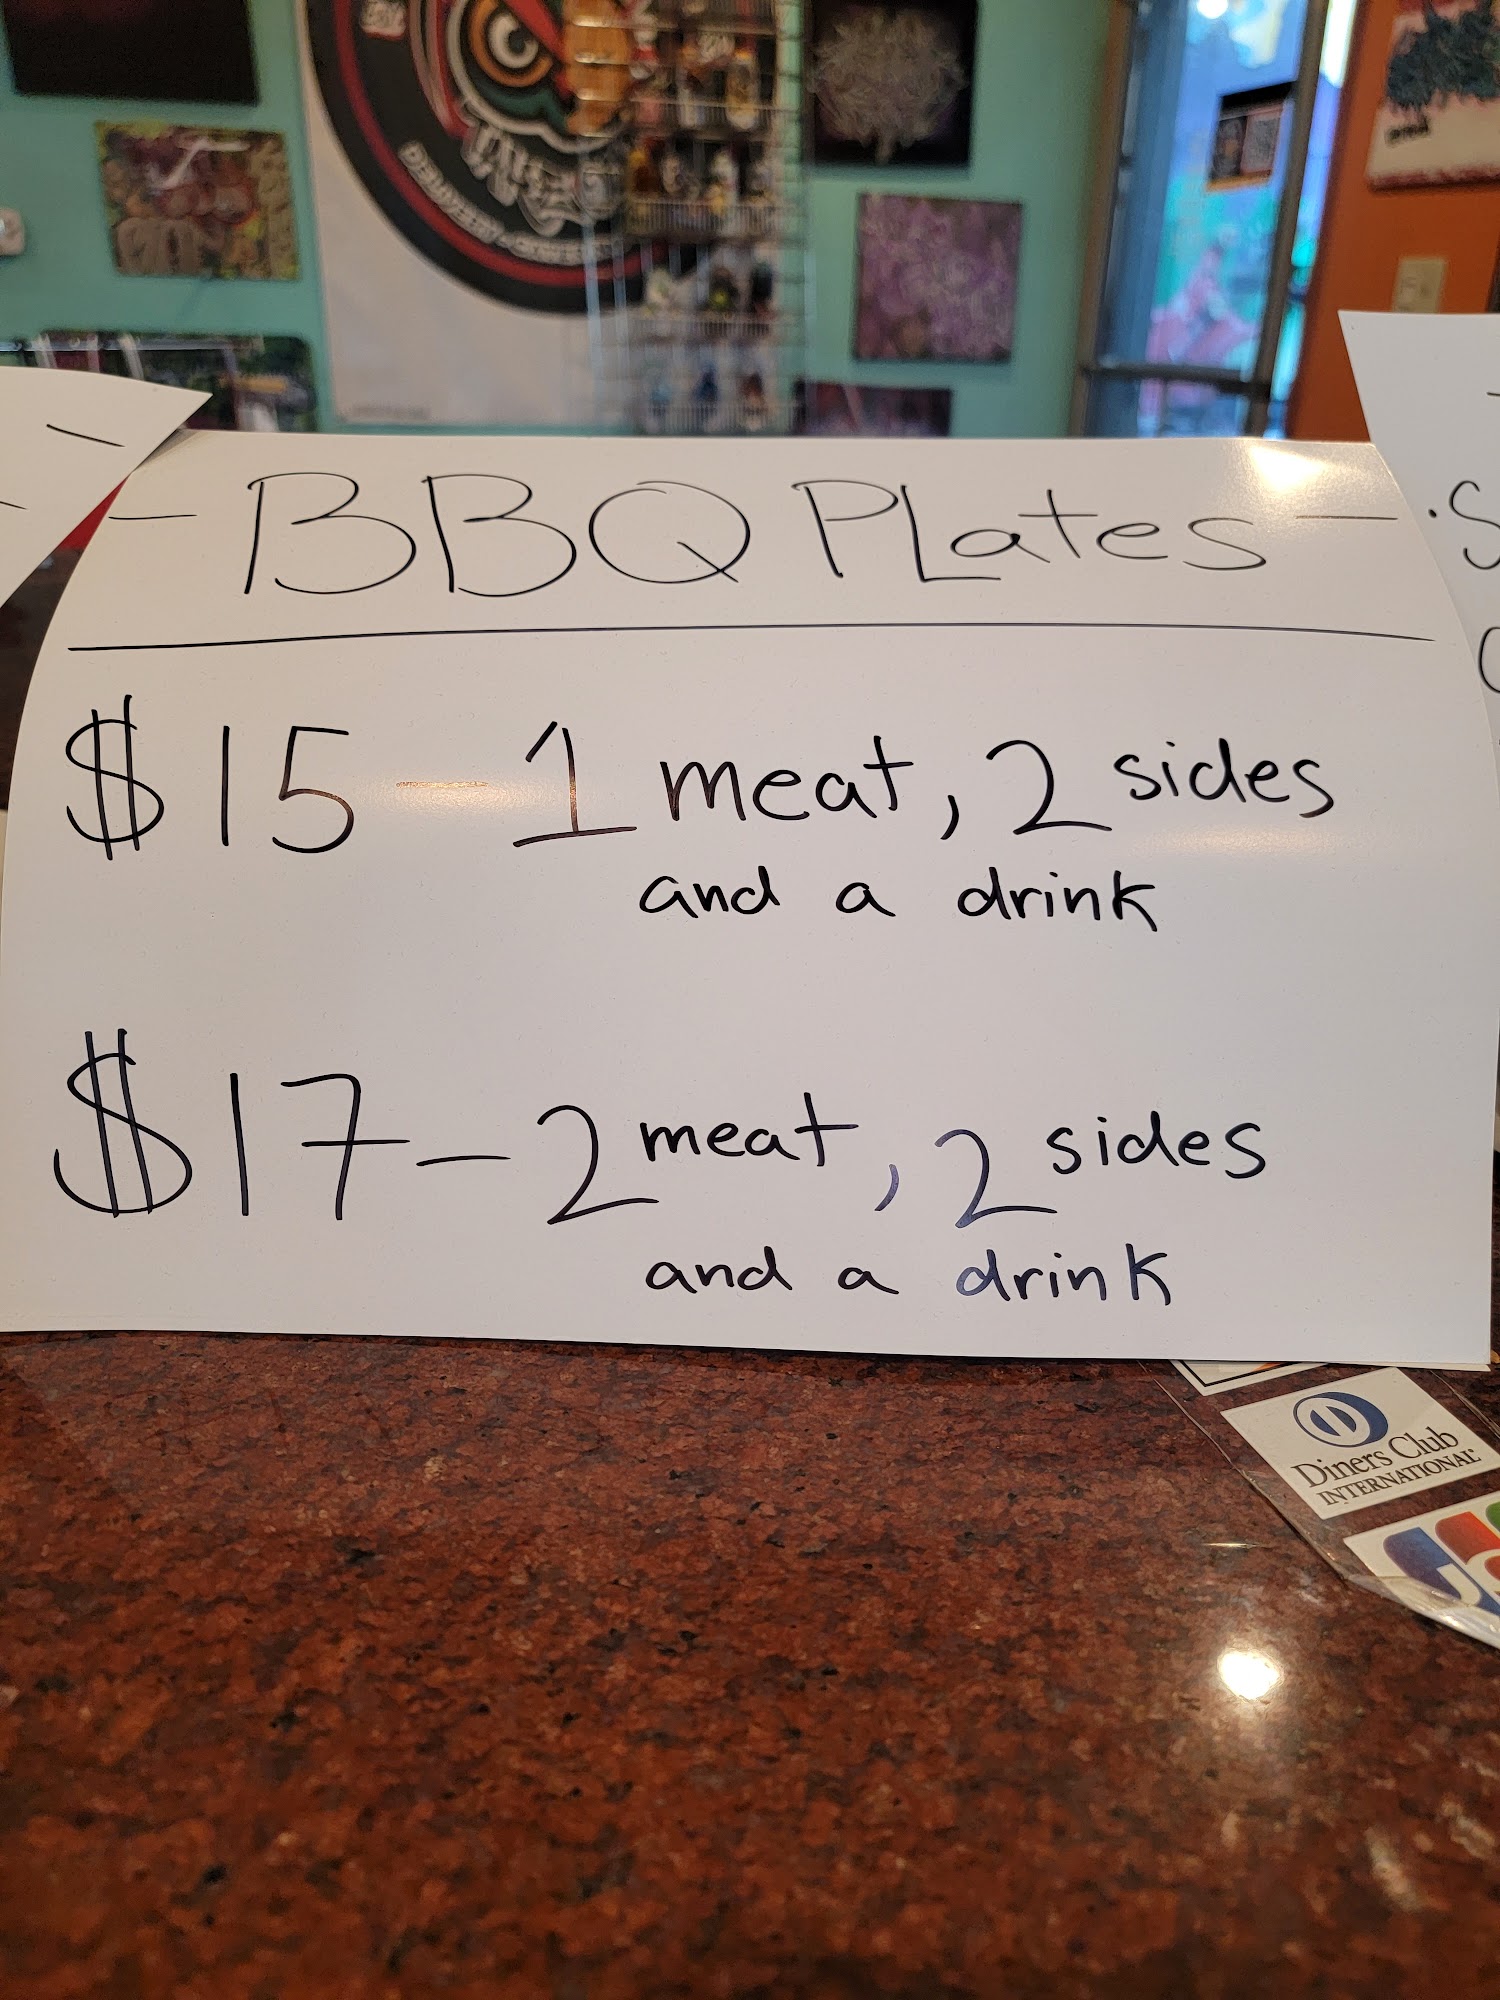 - BBQ PLates -
$15 - 1 meat, 2 sides
and a drink
$17 - 2 meat, 2 sides
and a drink
Diners Club
INTERNATIONAL